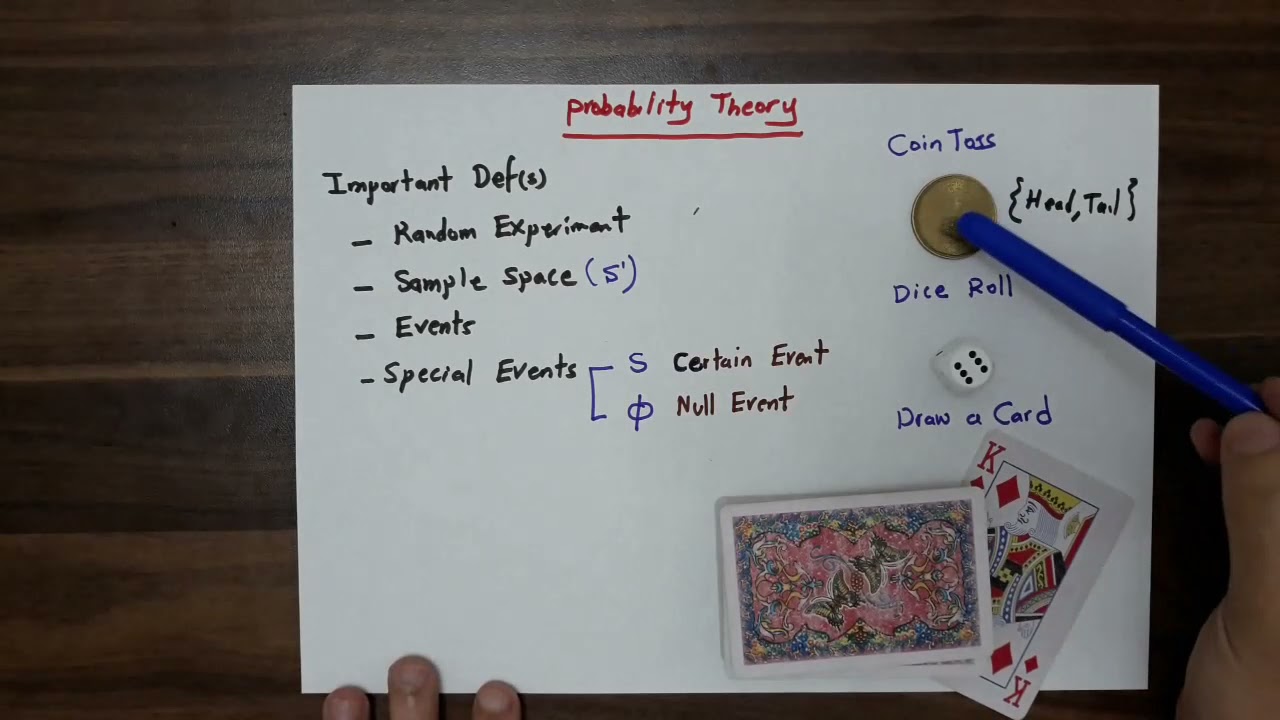 Probability Theory
Important Def(s)
- Random Experiment
- Sample Space (S)
- Events
- Special Events
S Certain Event
ϕ Null Event
Coin Toss
{Head, Tail}
Dice Roll
Draw a Card
K
K